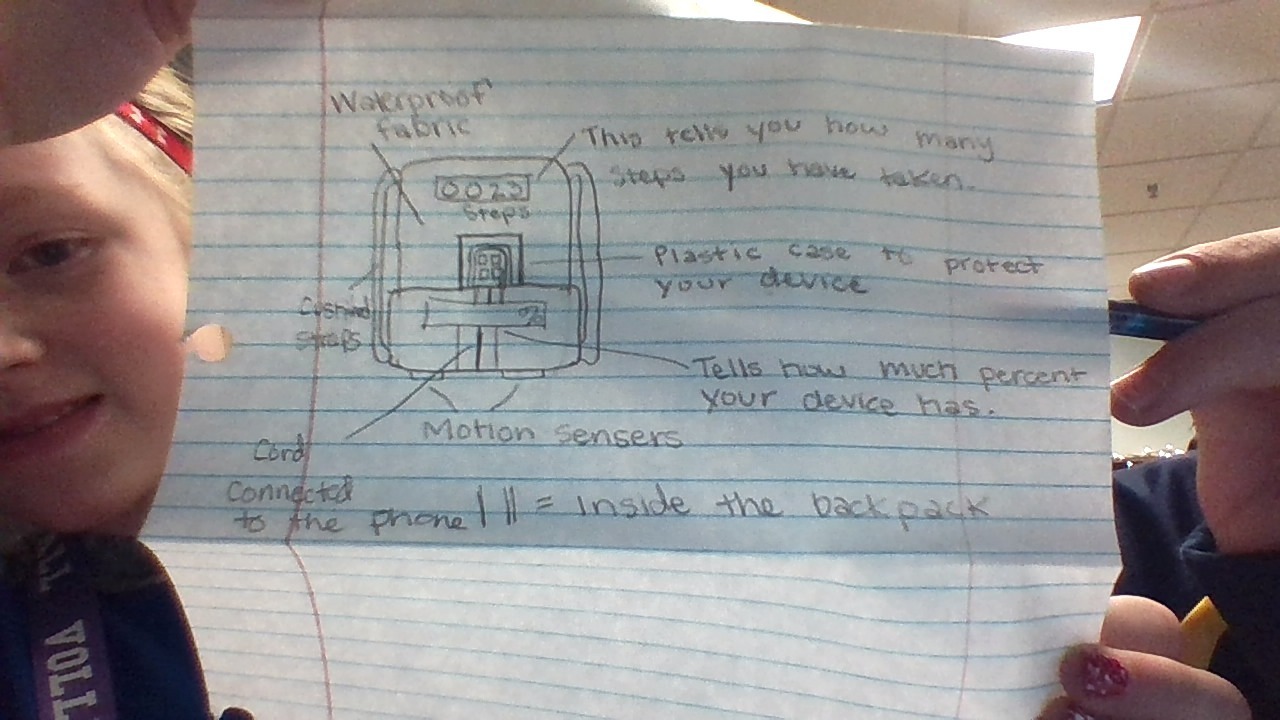 Waterproof
fabric
This tells you how many
steps you have taken.
0023
Steps
Plastic case to protect
your device
Cushind
straps
Tells how much percent
your device has.
Motion sensers
Cord
Connected
to the phone
| || = inside the backpack
VOLL